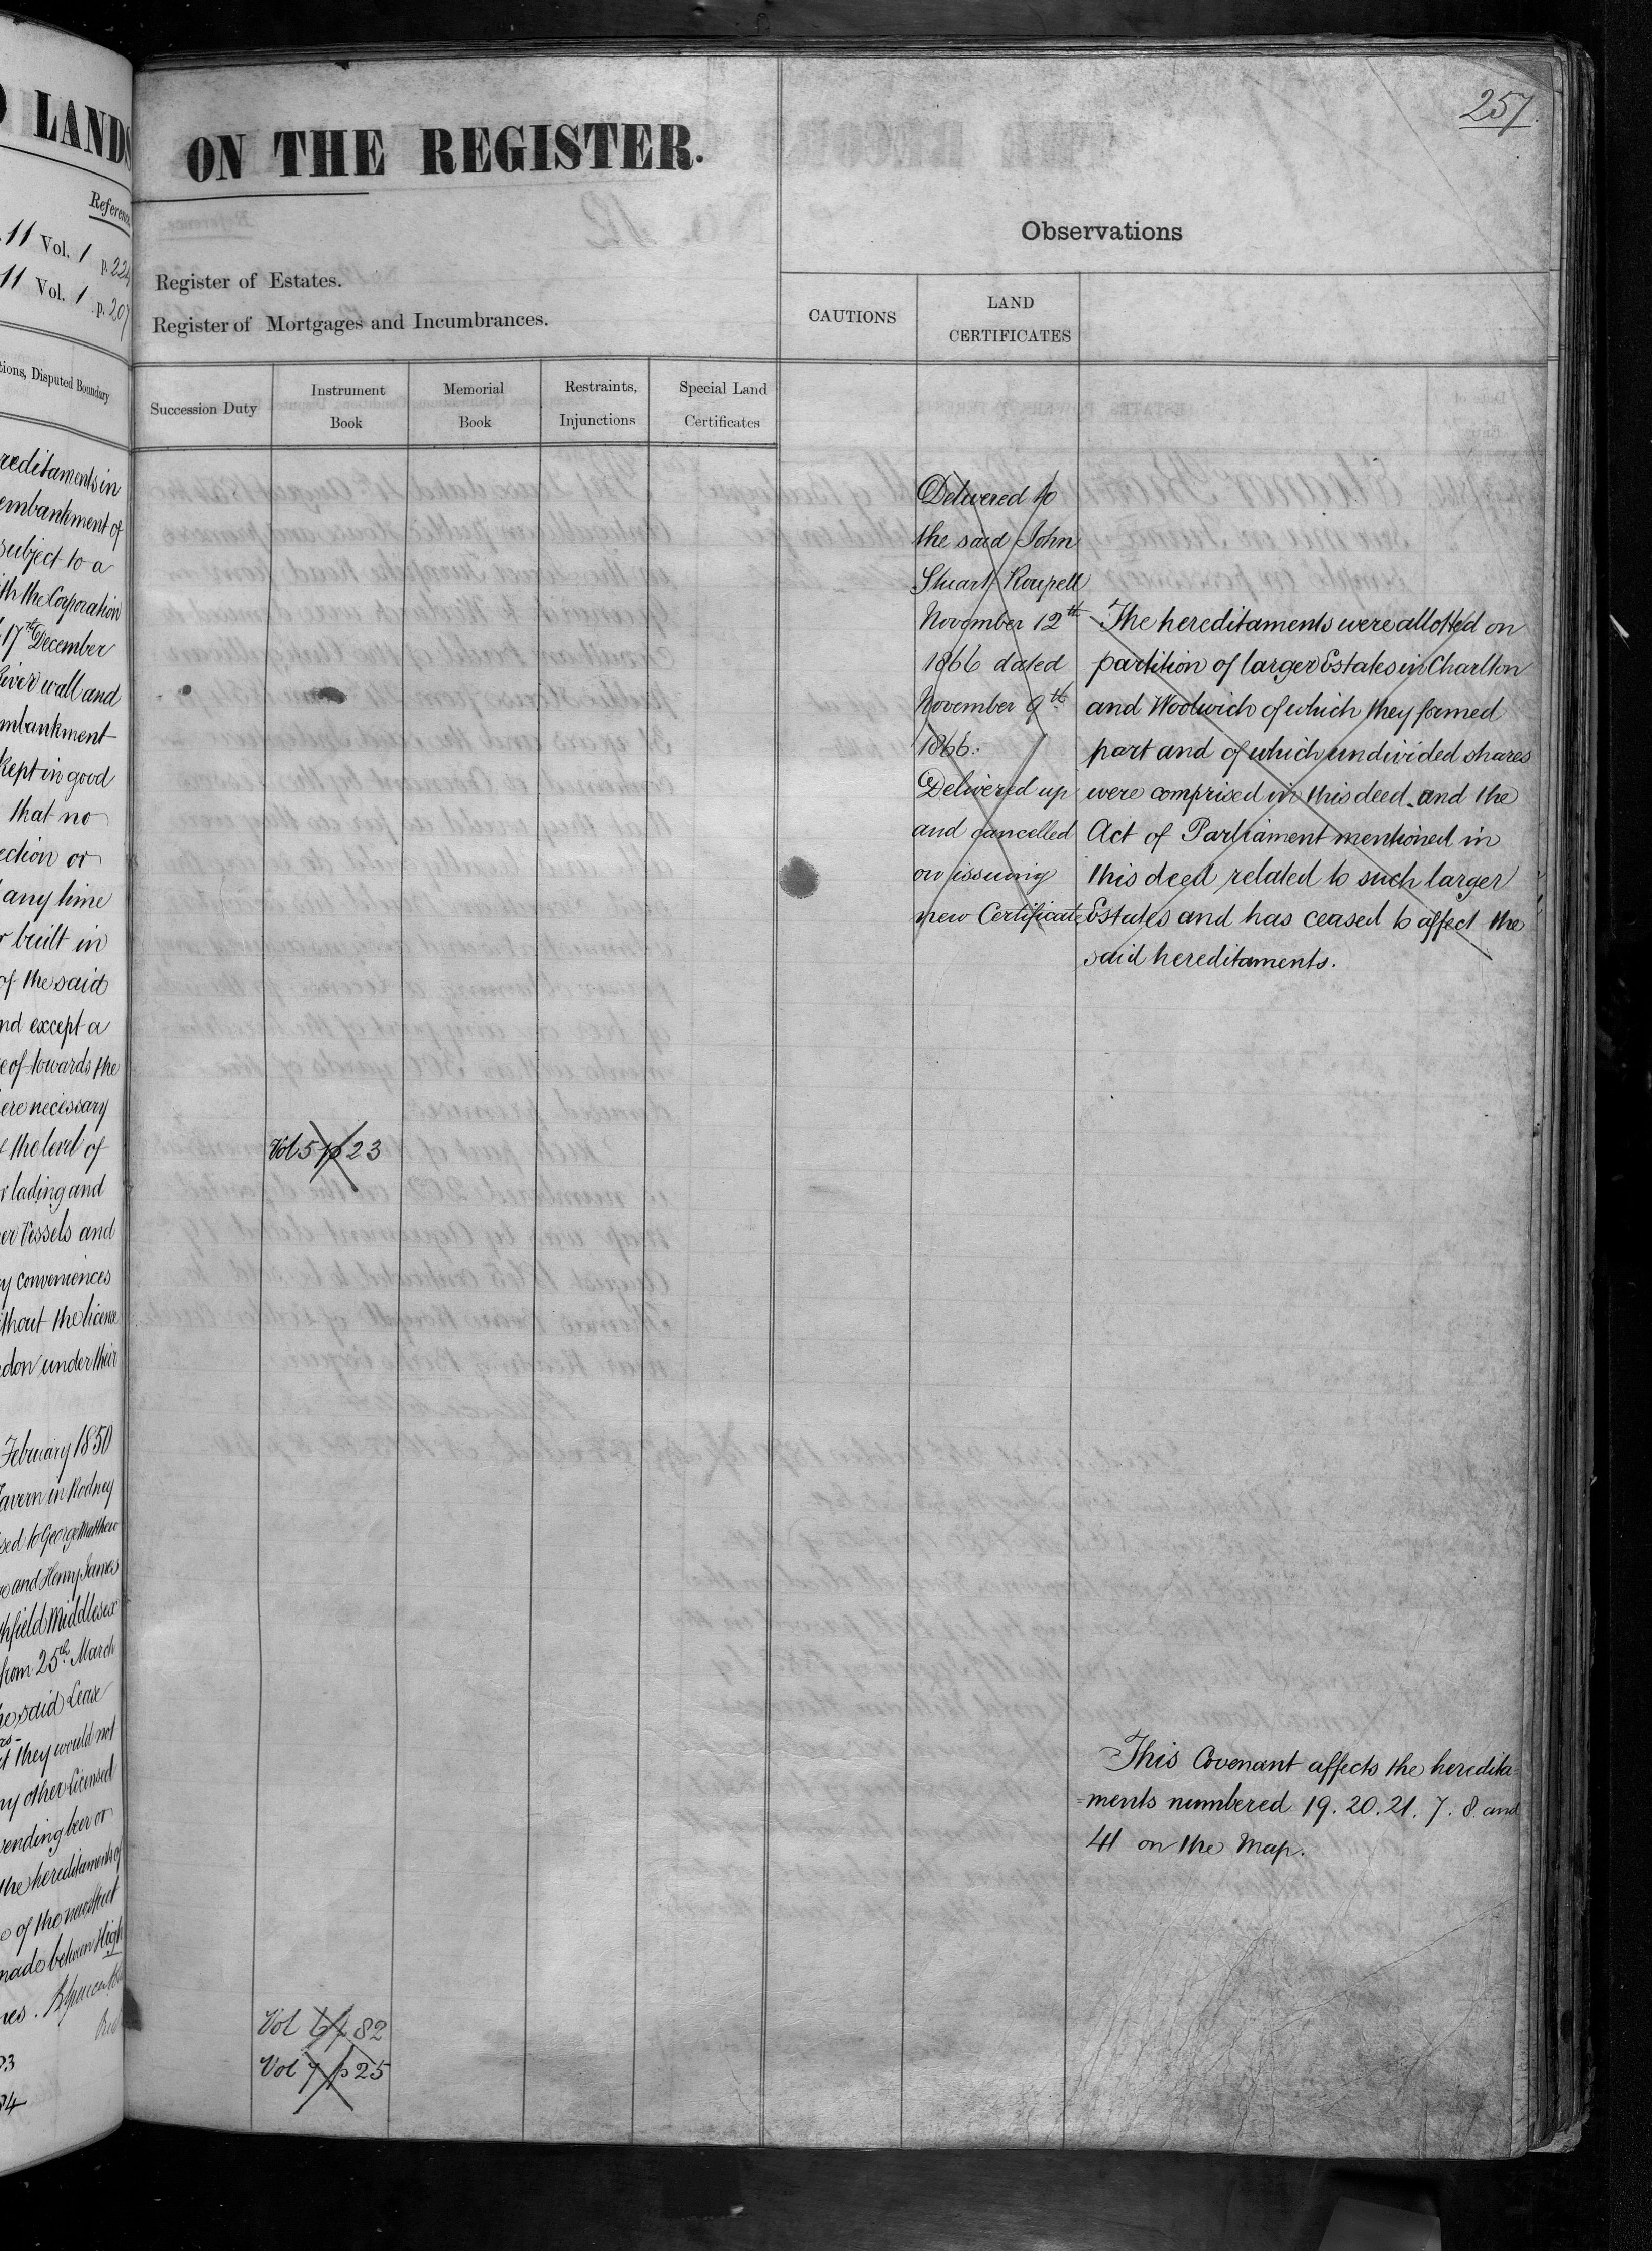 LANDS
Reference
11 Vol. 1 p. 224
11 Vol. 1 p. 207
tions, Disputed Boundary
reditaments in
embankment of
subject to a
ith the Corporation
17th December
river wall and
mbankment
kept in good
that no
ection or
any time
r built in
of the said
nd except a
eof towards the
ere necessary
the level of
r lading and
er Vessels and
y conveniences
ithout the license
don under their
February 1850
Tavern in Rodney
sed to George Matthew
e and Henry James
hfield Middlesex
from 25th March
he said Lease
t they would not
ny other licensed
vending beer or
the hereditaments of
of the new street
made between High
ON THE REGISTER.
Register of Estates.
Register of Mortgages and Incumbrances.
Succession Duty
Instrument
Book
Memorial
Book
Restraints,
Injunctions
Special Land
Certificates
Vol 5 p 23
Vol 6 p 82
Vol 7 p 25
257.
Observations
CAUTIONS
LAND
CERTIFICATES
Delivered to
the said John
Stuart Roupell
November 12th
1866 dated
November 9th
1866:
Delivered up
and cancelled
on issuing
new Certificate
The hereditaments were allotted on
partition of larger Estates in Charlton
and Woolwich of which they formed
part and of which undivided shares
were comprised in this deed and the
Act of Parliament mentioned in
this deed related to such larger
Estates and has ceased to affect the
said hereditaments.
This Covenant affects the heredita=
=ments numbered 19. 20. 21. 7. 8. and
41 on the Map.